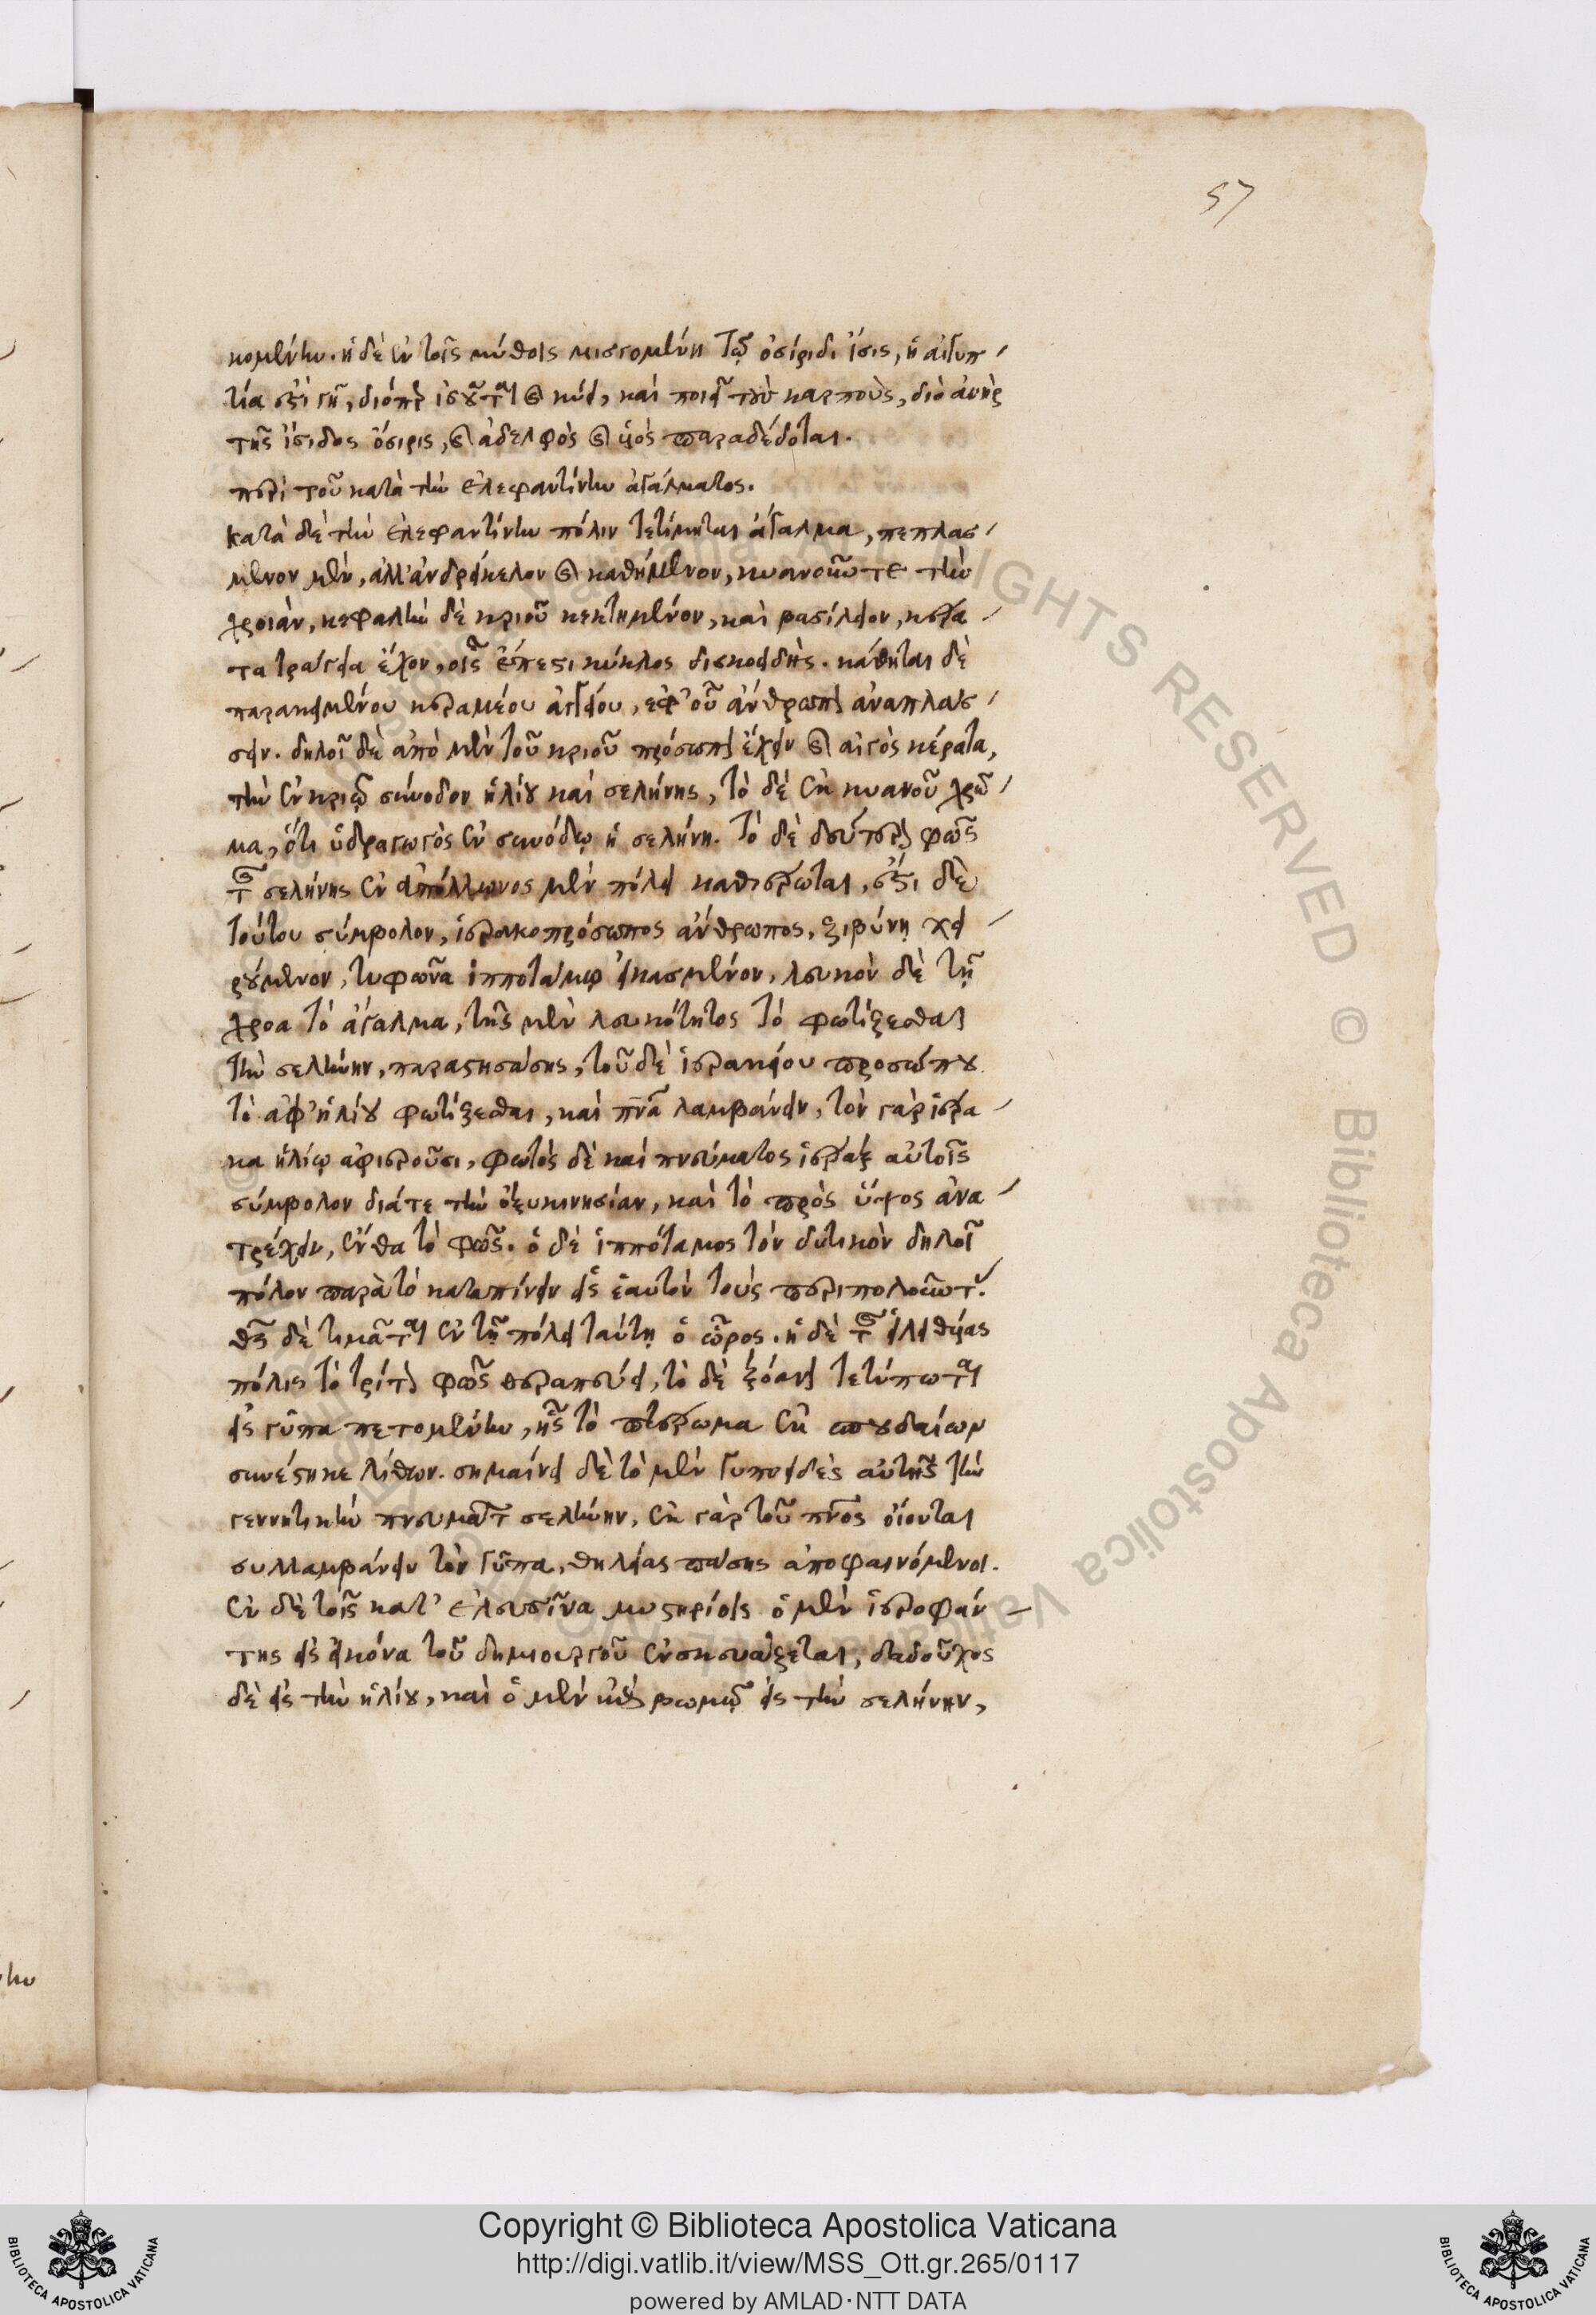 57
νομένην. ἡ δὲ ἐν τοῖς μύθοις μισγομένη τῷ ὀσίριδι ἴσις, ἡ αἰγυπ-
τία ἐστὶ γῆ, διόπερ ἰσοῦται καὶ κύει, καὶ ποιεῖ τοὺς καρποὺς, διὸ ἀνὴρ
τῆς ἴσιδος ὄσιρις, καὶ ἀδελφὸς καὶ υἱὸς παραδέδοται.
περὶ τοῦ κατὰ τὴν ἐλεφαντίνην ἀγάλματος.
κατὰ δὲ τὴν ἐλεφαντίνην πόλιν τετίμηται ἄγαλμα, πεπλασ-
μένον μὲν, ἀλλ' ἀνδρείκελον καὶ καθήμενον, κυανοῦν τε τὴν
χροιὰν, κεφαλὴν δὲ κριοῦ κεκτημένον, καὶ βασίλειον, κέρα-
τα τράγεια ἔχον, οἷς ἔπεστι κύκλος δισκοειδής. κάθηται δὲ
παρακειμένου κεραμέου ἀγγείου, ἐφ' οὗ ἄνθρωπον ἀναπλάσ-
σειν. δηλοῖ δὲ ἀπὸ μὲν τοῦ κριοῦ πρόσωπον ἔχειν καὶ αἰγὸς κέρατα,
τὴν ἐν κριῷ σύνοδον ἡλίου καὶ σελήνης, τὸ δὲ ἐκ κυανοῦ χρῶ-
μα, ὅτι ὑδραγωγὸς ἐν συνόδῳ ἡ σελήνη. τὸ δὲ δεύτερον φῶς
τῆς σελήνης ἐν ἀπόλλωνος μὲν πόλει καθιέρωται, ἔστι δὲ
τούτου σύμβολον, ἱερακοπρόσωπος ἄνθρωπος, ζιβύνῃ χει-
ρούμενον, τυφῶνα ἱπποτάμῳ εἰκασμένον, λευκὸν δὲ τῇ
χρόα τὸ ἄγαλμα, τῆς μὲν λευκότητος τὸ φωτίζεσθαι
τὴν σελήνην, παραστησάσης, τοῦ δὲ ἱερακείου προσώπου
τὸ ἀφ' ἡλίου φωτίζεσθαι, καὶ πνα λαμβάνειν, τὸν γὰρ ἱέρα-
κα ἡλίῳ ἀφιεροῦσι, φωτὸς δὲ καὶ πνεύματος ἱέραξ αὐτοῖς
σύμβολον διά τε τὴν ὀξυκινησίαν, καὶ τὸ πρὸς ὕψος ἀνα-
τρέχειν, ἔνθα τὸ φῶς. ὁ δὲ ἱππόταμος τὸν δυτικὸν δηλοῖ
πόλον παρὰ τὸ καταπίνειν εἰς ἑαυτὸν τοὺς περιπολοῦντας.
θς δὲ τιμᾶται ἐν τῇ πόλει ταύτῃ ὁ ὧρος. ἡ δὲ τῆς εἰλειθυίας
πόλις τὸ τρίτον φῶς θεραπεύει, τὸ δὲ ξόανον τετύπωται
εἰς γῦπα πετομένην, ἧς τὸ πτέρωμα ἐκ σπουδαίων
συνέστηκε λίθων. σημαίνει δὲ τὸ μὲν γυποειδὲς αὐτῆς τὴν
γεννητικὴν πνευμάτων σελήνην, ἐκ γὰρ τοῦ πνος οἴονται
συλλαμβάνειν τὸν γῦπα, θηλείας πάσης ἀποφαινόμενοι.
ἐν δὲ τοῖς κατ' ἐλευσῖνα μυστηρίοις ὁ μὲν ἱεροφάν-
της εἰς εἰκόνα τοῦ δημιουργοῦ ἐνσκευάζεται, δαδοῦχος
δὲ εἰς τὴν ἡλίου, καὶ ὁ μὲν ἐπὶ βωμῷ εἰς τὴν σελήνην,
ALL RIGHTS RESERVED © Biblioteca Apostolica Vaticana
Copyright © Biblioteca Apostolica Vaticana
http://digi.vatlib.it/view/MSS_Ott.gr.265/0117
powered by AMLAD·NTT DATA
BIBLIOTECA APOSTOLICA VATICANA
BIBLIOTECA APOSTOLICA VATICANA